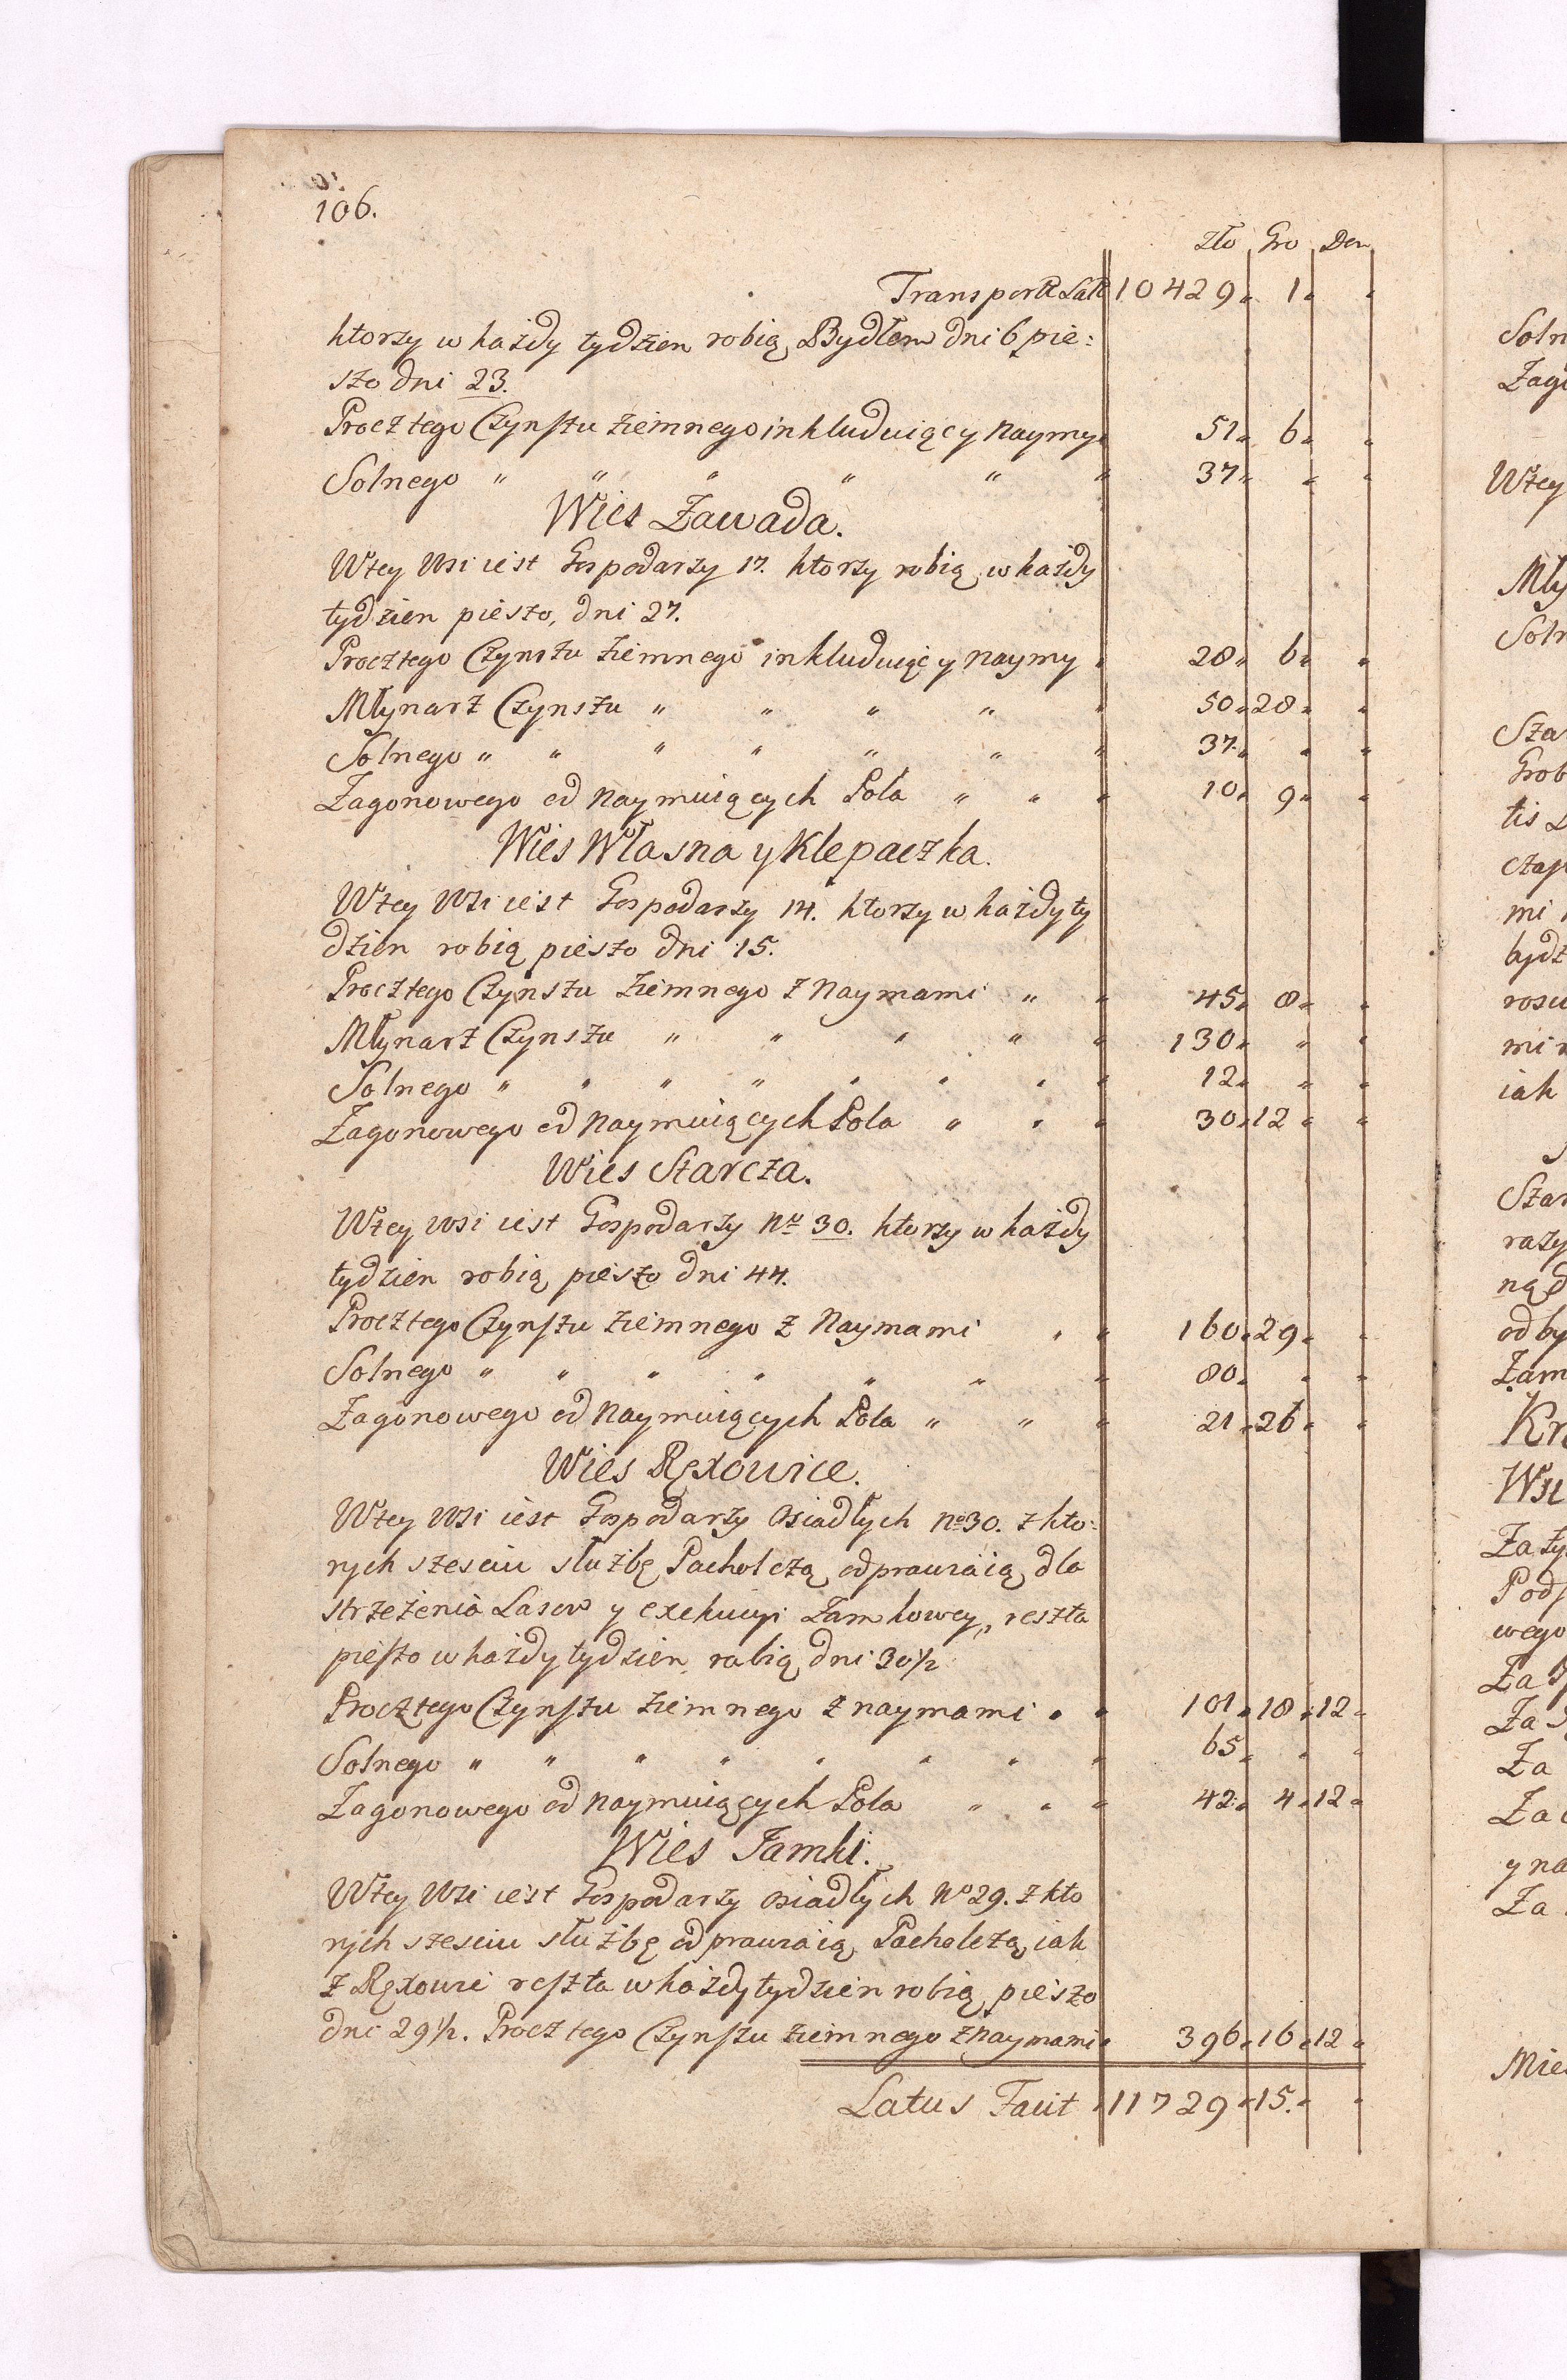 106.
Zło Gro Den
Transport Lat. 10429 „ 1 „ „
ktorzy w każdy tydzien robią Bydłem dni 6 pie:
szo dni 23.
Procz tego Czynszu ziemnego inkluduiąc y naymy „ 51 „ 6 „ „
Solnego „ „ „ „ „ „ 37 „ „ „
Wies Zawada.
W tey Wsi iest Gospodarzy 17. ktorzy robią w każdy
tydzien pieszo, dni 27.
Procz tego Czynszu ziemnego inkluduiąc y naymy „ 28 „ 6 „ „
Młynarz Czynszu „ „ „ „ „ 50 „ 28 „ „
Solnego „ „ „ „ „ „ „ 37 „ „ „
Zagonowego od naymuiących Pola „ „ „ 10 „ 9 „ „
Wies Własna y Klepaczka.
W tey Wsi iest Gospodarzy 14. ktorzy w każdy ty
dzien robią pieszo dni 15.
Procz tego Czynszu ziemnego z Naymami „ „ 45 „ 8 „ „
Młynarz Czynszu „ „ „ „ „ 130 „ „ „
Solnego „ „ „ „ „ „ „ „ 12 „ „ „
Zagonowego od naymuiących Pola „ „ „ 30 „ 12 „ „
Wies Starcza.
W tey wsi iest Gospodarzy No 30. ktorzy w każdy
tydzien robią pieszo dni 44.
Procz tego Czynszu ziemnego z Naymami „ „ 160 „ 29 „ „
Solnego „ „ „ „ „ „ „ 80 „ „ „
Zagonowego od naymuiących Pola „ „ „ 21 „ 26 „ „
Wies Ręxowice.
W tey Wsi iest Gospodarzy osiadłych No 30. z kto:
rych szesciu służbę Pacholczą odprawiaią dla
strzeżenia Lasow y exekucyi Zamkowey, reszta
pieszo w każdy tydzien robią dni 30 1/2
Procz tego Czynszu ziemnego z naymami „ „ 101 „ 18 „ 12 „
Solnego „ „ „ „ „ „ „ „ 65 „ „ „
Zagonowego od naymuiących Pola „ „ „ 42 „ 4 „ 12 „
Wies Jamki.
W tey Wsi iest Gospodarzy osiadłych No 29. z kto
rych szesciu służbę odprawiaią Pacholczą, iak
z Ręxowic reszta w każdy tydzien robią pieszo
dni 29 1/2. Procz tego Czynszu ziemnego z naymami „ 396 „ 16 „ 12 „
Latus Facit „ 11729 „ 15. „ „
Soln
Zago
W tey
Mły
Soln
Sta
Grob
tis
czap
mi
bydz
rosu
mi
iak
Star
razy
ną d
od by
Zam
Kr
Wsi
Za ży
Pod
wego
Za
Za
Za
Za
y na
Za
Mies